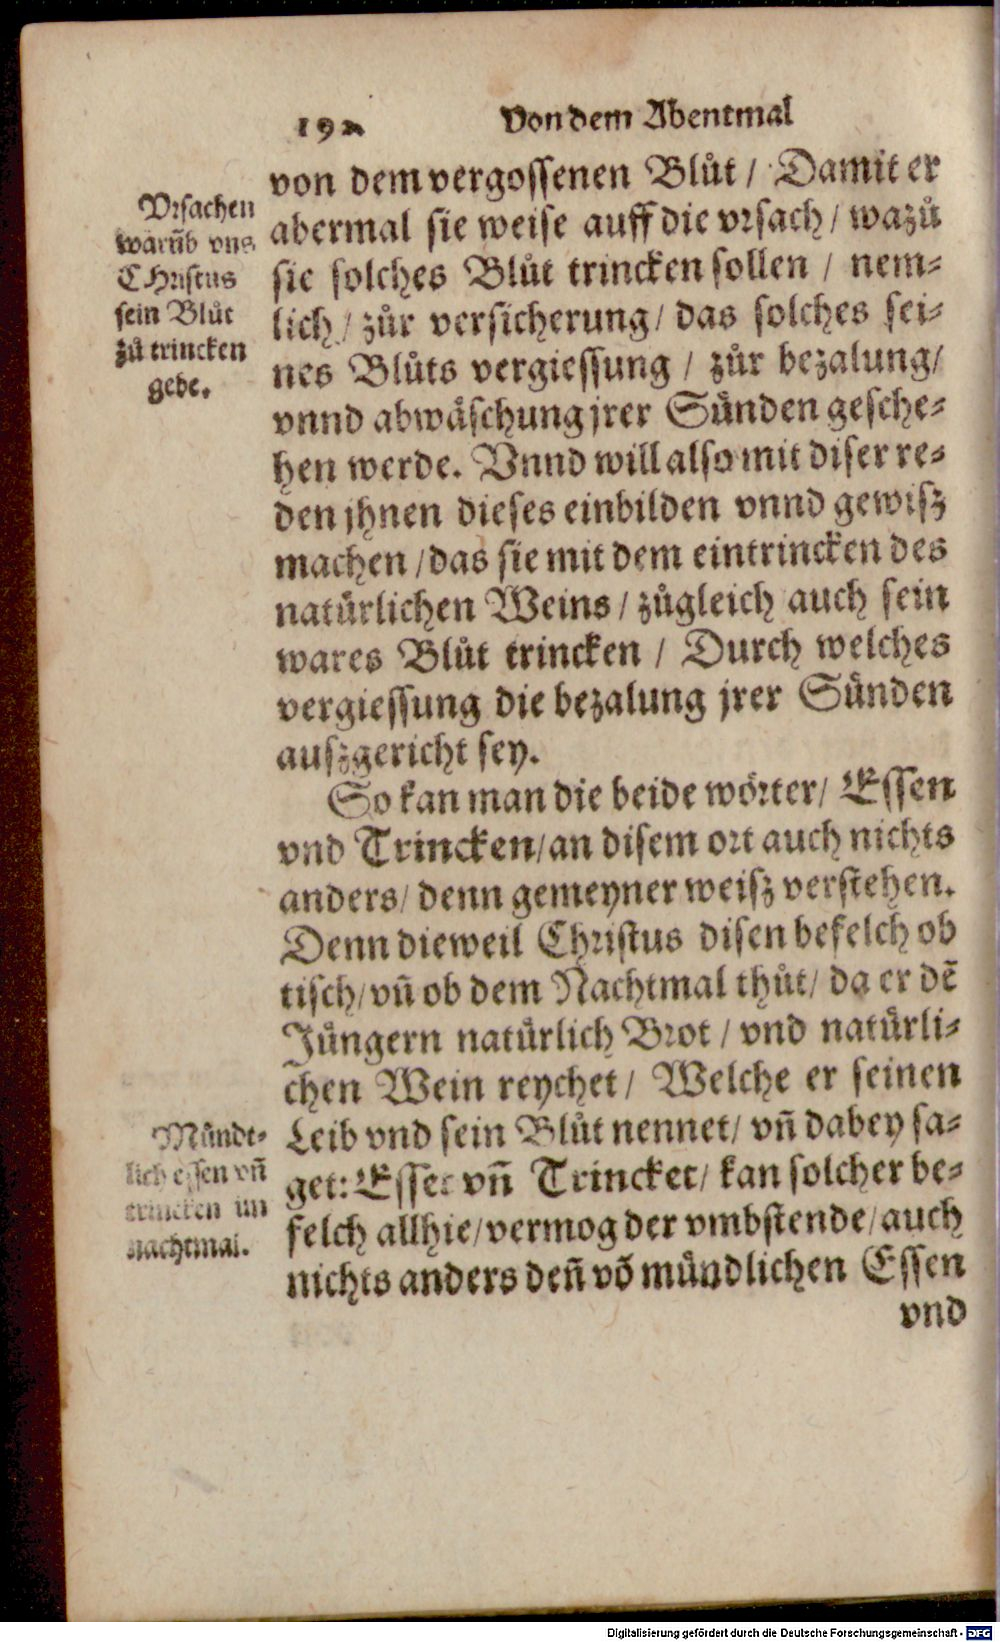 192 Von dem Abentmal
von dem vergossenen Blůt / Damit er
abermal sie weise auff die vrsach / wazů
sie solches Blůt trincken sollen / nem-
lich / zůr versicherung / das solches sei-
nes Blůts vergiessung / zůr bezalung /
vnnd abwäschung jrer Sünden gesche-
hen werde. Vnnd will also mit diser re-
den jhnen dieses einbilden vnnd gewisz
machen / das sie mit dem eintrincken des
natürlichen Weins / zůgleich auch sein
wares Blůt trincken / Durch welches
vergiessung die bezalung jrer Sünden
auszgericht sey.
Vrsachen
warũb vns
CHristus
sein Blůt
zů trincken
gebe.
So kan man die beide wörter / Essen
vnd Trincken / an disem ort auch nichts
anders / denn gemeyner weisz verstehen.
Denn dieweil Christus disen befelch ob
tisch / vñ ob dem Nachtmal thůt / da er dẽ
Jüngern natürlich Brot / vnd natürli-
chen Wein reychet / Welche er seinen
Leib vnd sein Blůt nennet / vñ dabey sa-
get: Esset vñ Trincket / kan solcher be-
felch allhie / vermog der vmbstende / auch
nichts anders deñ võ mündlichen Essen
vnd
Mündt-
lich essen vñ
trincken im
nachtmal.
Digitalisierung gefördert durch die Deutsche Forschungsgemeinschaft - DFG